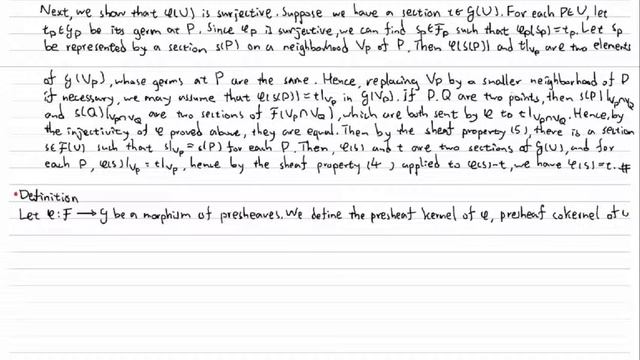 Next, we show that φ(U) is surjective. Suppose we have a section t∈𝒢(U). For each P∈U, let
t_P∈𝒢_P be its germ at P. Since φ_P is surjective, we can find s_P∈ℱ_P such that φ_P(s_P)=t_P. Let s_P
be represented by a section s(P) on a neighborhood V_P of P. Then φ(s(P)) and t|_{V_P} are two elements
of 𝒢(V_P), whose germs at P are the same. Hence, replacing V_P by a smaller neighborhood of P
if necessary, we may assume that φ(s(P))=t|_{V_P} in 𝒢(V_P). If P,Q are two points, then s(P)|_{V_P∩V_Q}
and s(Q)|_{V_P∩V_Q} are two sections of ℱ(V_P∩V_Q), which are both sent by φ to t|_{V_P∩V_Q}. Hence, by
the injectivity of φ proved above, they are equal. Then by the sheaf property (5), there is a section
s∈ℱ(U) such that s|_{V_P}=s(P) for each P. Then, φ(s) and t are two sections of 𝒢(U), and for
each P, φ(s)|_{V_P}=t|_{V_P}, hence by the sheaf property (4) applied to φ(s)-t, we have φ(s)=t. #
•Definition
Let φ:ℱ→𝒢 be a morphism of presheaves. We define the presheaf kernel of φ, presheaf cokernel of